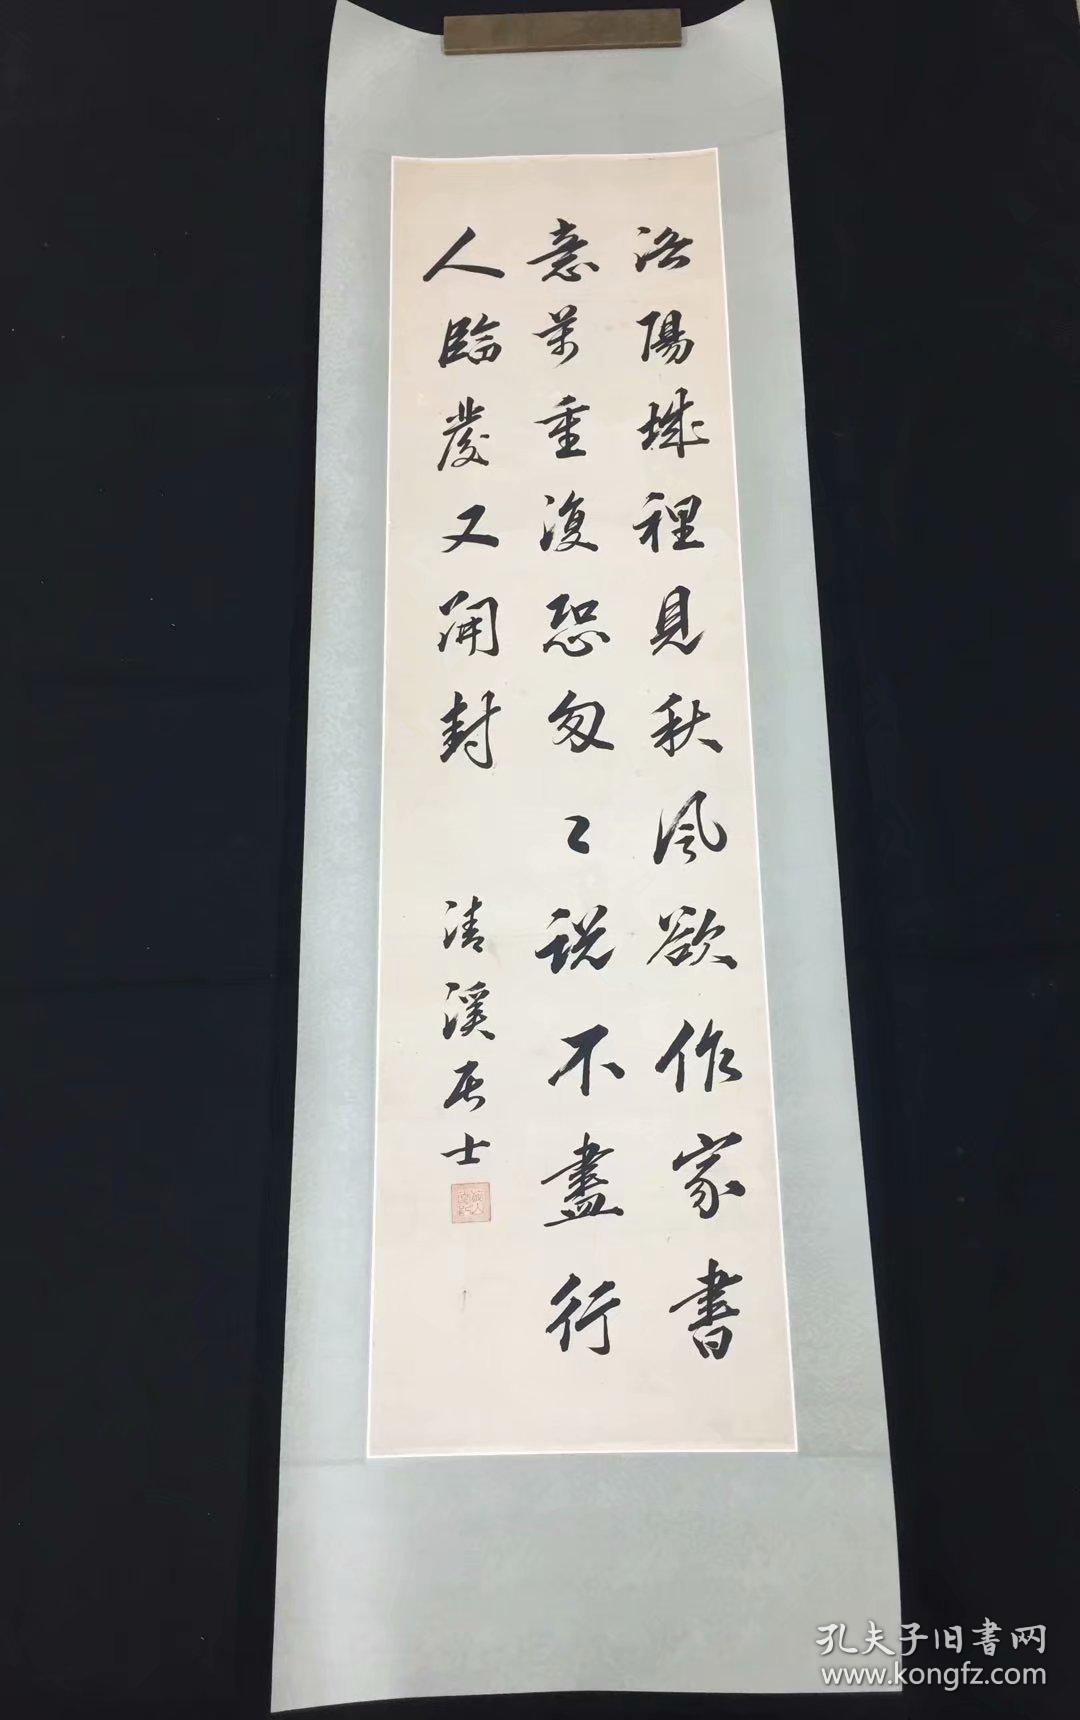 洛陽城裡見秋風欲作家書
意萬重復恐匆〻說不盡行
人臨發又開封
清溪居士
孔夫子旧書网
www.kongfz.com